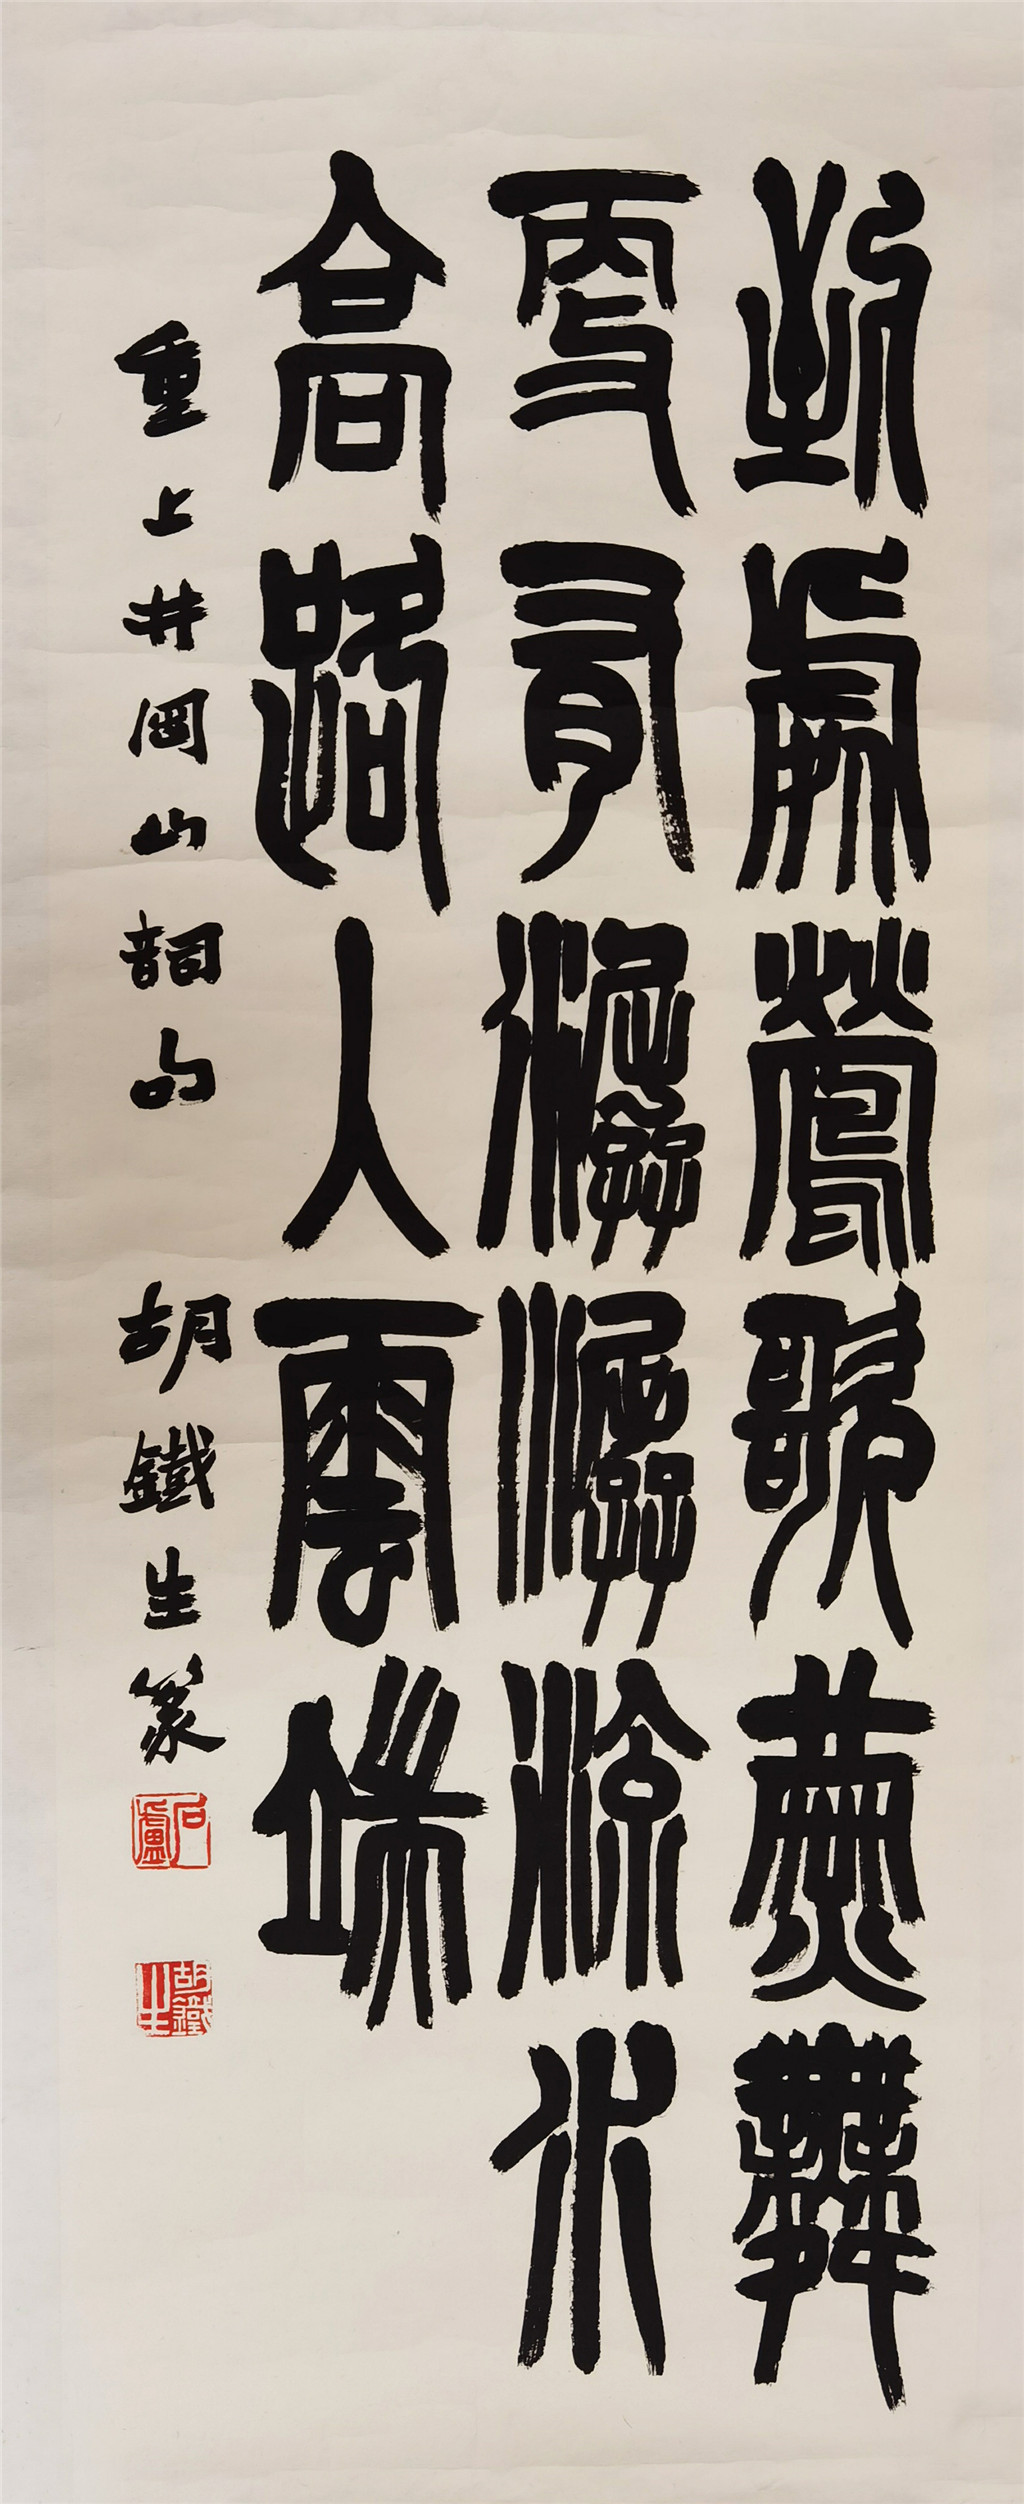 到處鶯歌燕舞
更有潺潺流水
高路入雲端
重上井岡山詞句 胡鐵生篆
石廬
胡鐵生